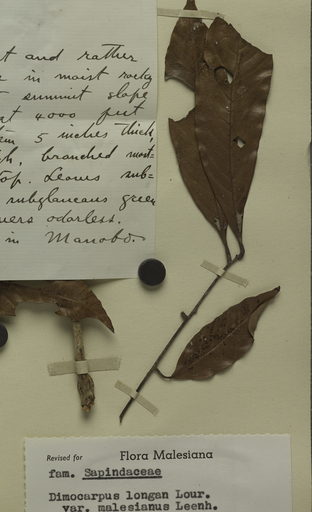 t and rather
in moist rocky
summit slope
at 4000 feet
5 inches thick,
branched most=
top. Leaves sub=
subglaucous green
odorless.
in Manobo.
Revised for Flora Malesiana
fam. Sapindaceae
Dimocarpus longan Lour.
var. malesianus Leenh.